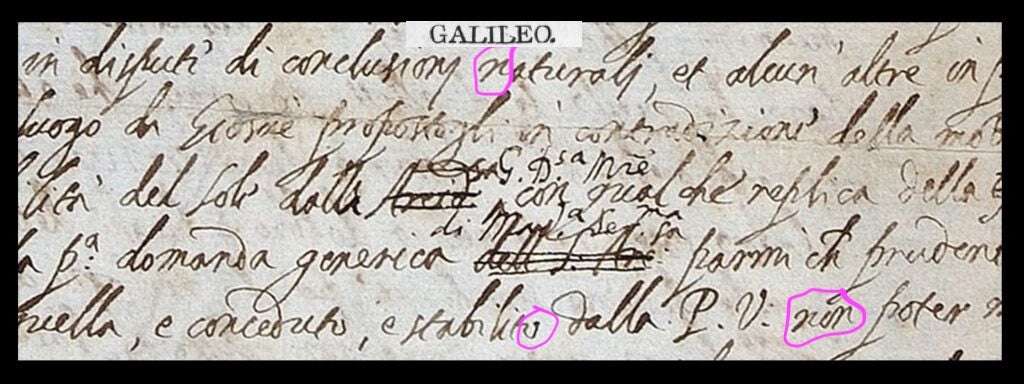 GALILEO.
in dispute di conclusioni naturali, et alcun' altre in p
luogo di Giosuè propostogli in contradizione della mob
lità del Sole dalla G. D.sa Mre con qualche replica della
a p.a domanda generica di Mad.a Ser.ma parmi ch pruden
uella, e conceduto, e stabilito dalla P. V. non poter m